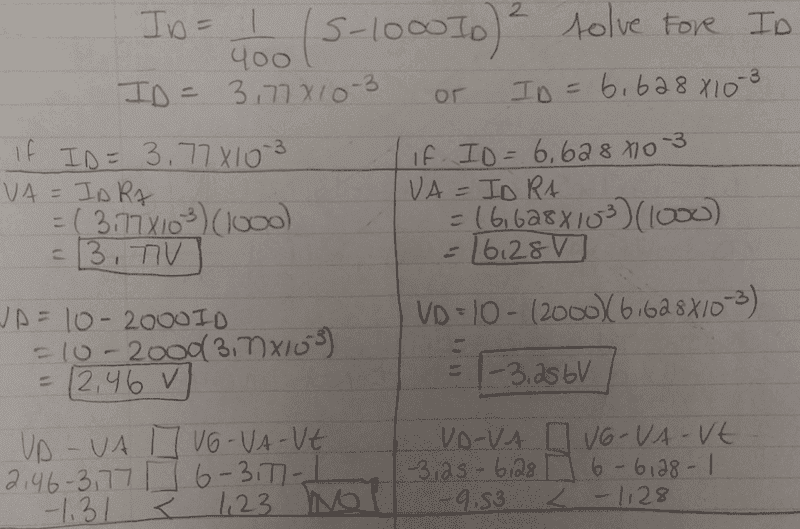 ID = 1/400 (5-1000ID)² solve FORE ID
ID = 3.77x10⁻³ or ID = 6.628 x10⁻³
if ID = 3.77x10⁻³
VA = ID RA
= (3.77x10⁻³)(1000)
= 3.77V
VD = 10 - 2000ID
= 10 - 2000(3.77x10⁻³)
= 2.46 V
VD - VA □ VG-VA-Vt
2.46-3.77 □ 6-3.77-1
-1.31 < 1.23 NO
if ID = 6.628 x10⁻³
VA = ID RA
= (6.628x10⁻³)(1000)
= 6.28V
VD = 10 - (2000)(6.628x10⁻³)
=
= -3.256V
VD-VA □ VG-VA-Vt
-3.25 - 6.28 □ 6-6.28-1
-9.53 < -1.28